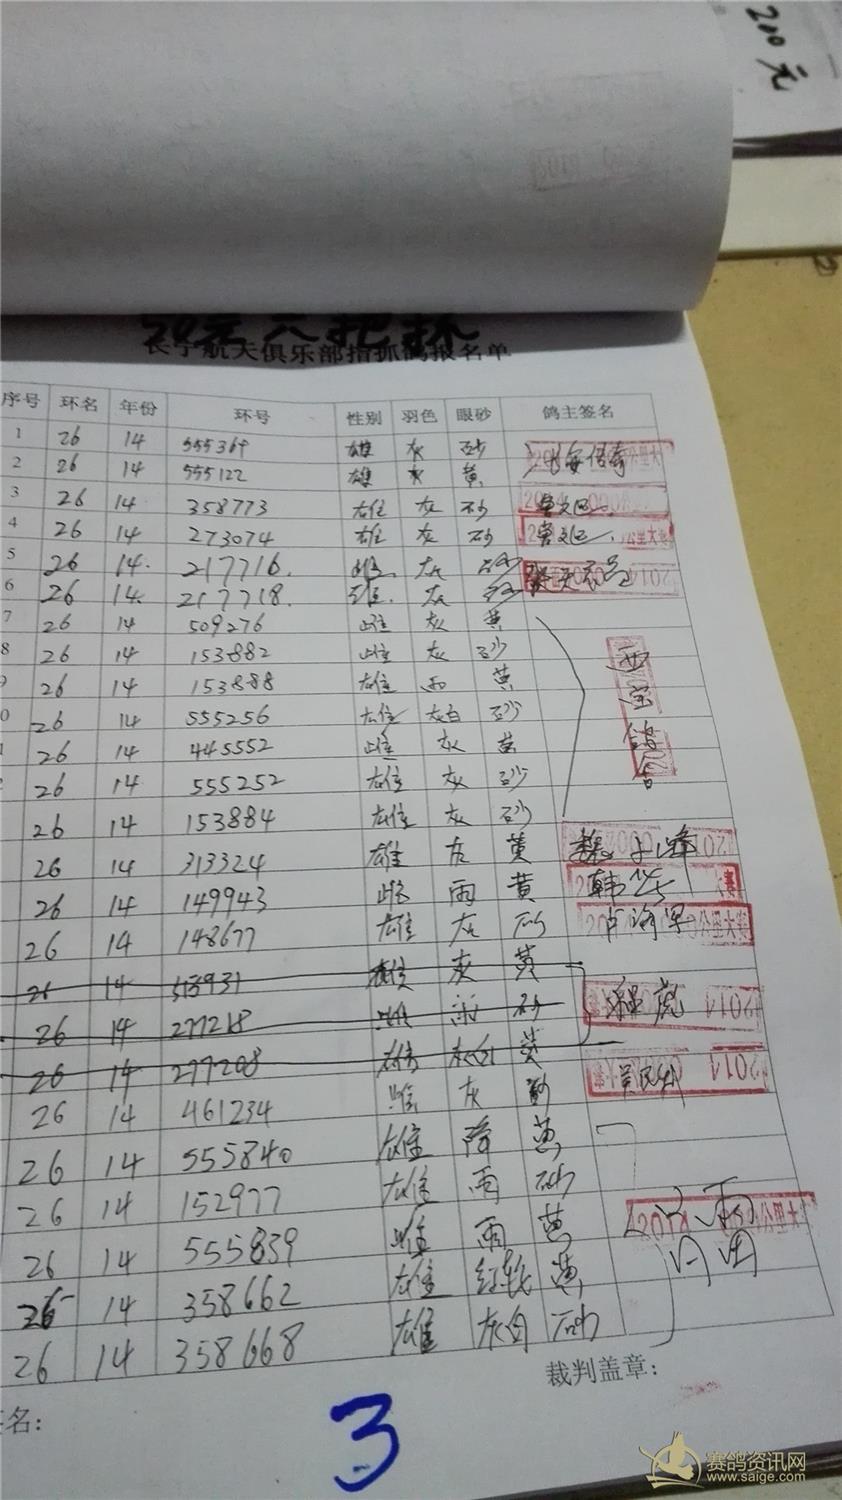 200元
长宁航天俱乐部指抓鸽报名单
序号 环名 年份 环号 性别 羽色 眼砂 鸽主签名
1 26 14 555369 雄 灰 砂
2 26 14 555122 雄 灰 黄
3 26 14 358773 雄 灰 砂
4 26 14 273074 雄 灰 砂
5 26 14. 217716. 雌 灰 砂
6 26 14. 217718. 雄. 灰 砂
7 26 14 509276 雌 灰 黄
8 26 14 153882 雌 灰 砂
9 26 14 153888 雄 雨 黄
0 26 14 555256 雄 灰白 砂
1 26 14 445552 雌 灰 黄
2 26 14 555252 雄 灰 砂
26 14 153884 雄 灰 砂
26 14 313324 雄 灰 黄
26 14 149943 雌 雨 黄 韩华
26 14 148677 雄 灰 砂
26 14 513931 雄 灰 黄
26 14 277218 雌 雨 砂 程虎
26 14 277208 雄 灰白 黄
26 14 461234 雌 灰 砂
26 14 555840 雄 降 黄
26 14 152977 雄 雨 砂
26 14 555839 雌 雨 黄
26 14 358662 雄 红轮 黄
26 14 358668 雄 灰白 砂
西宝鸽舍
裁判盖章：
签名：
3
赛鸽资讯网
www.saige.com